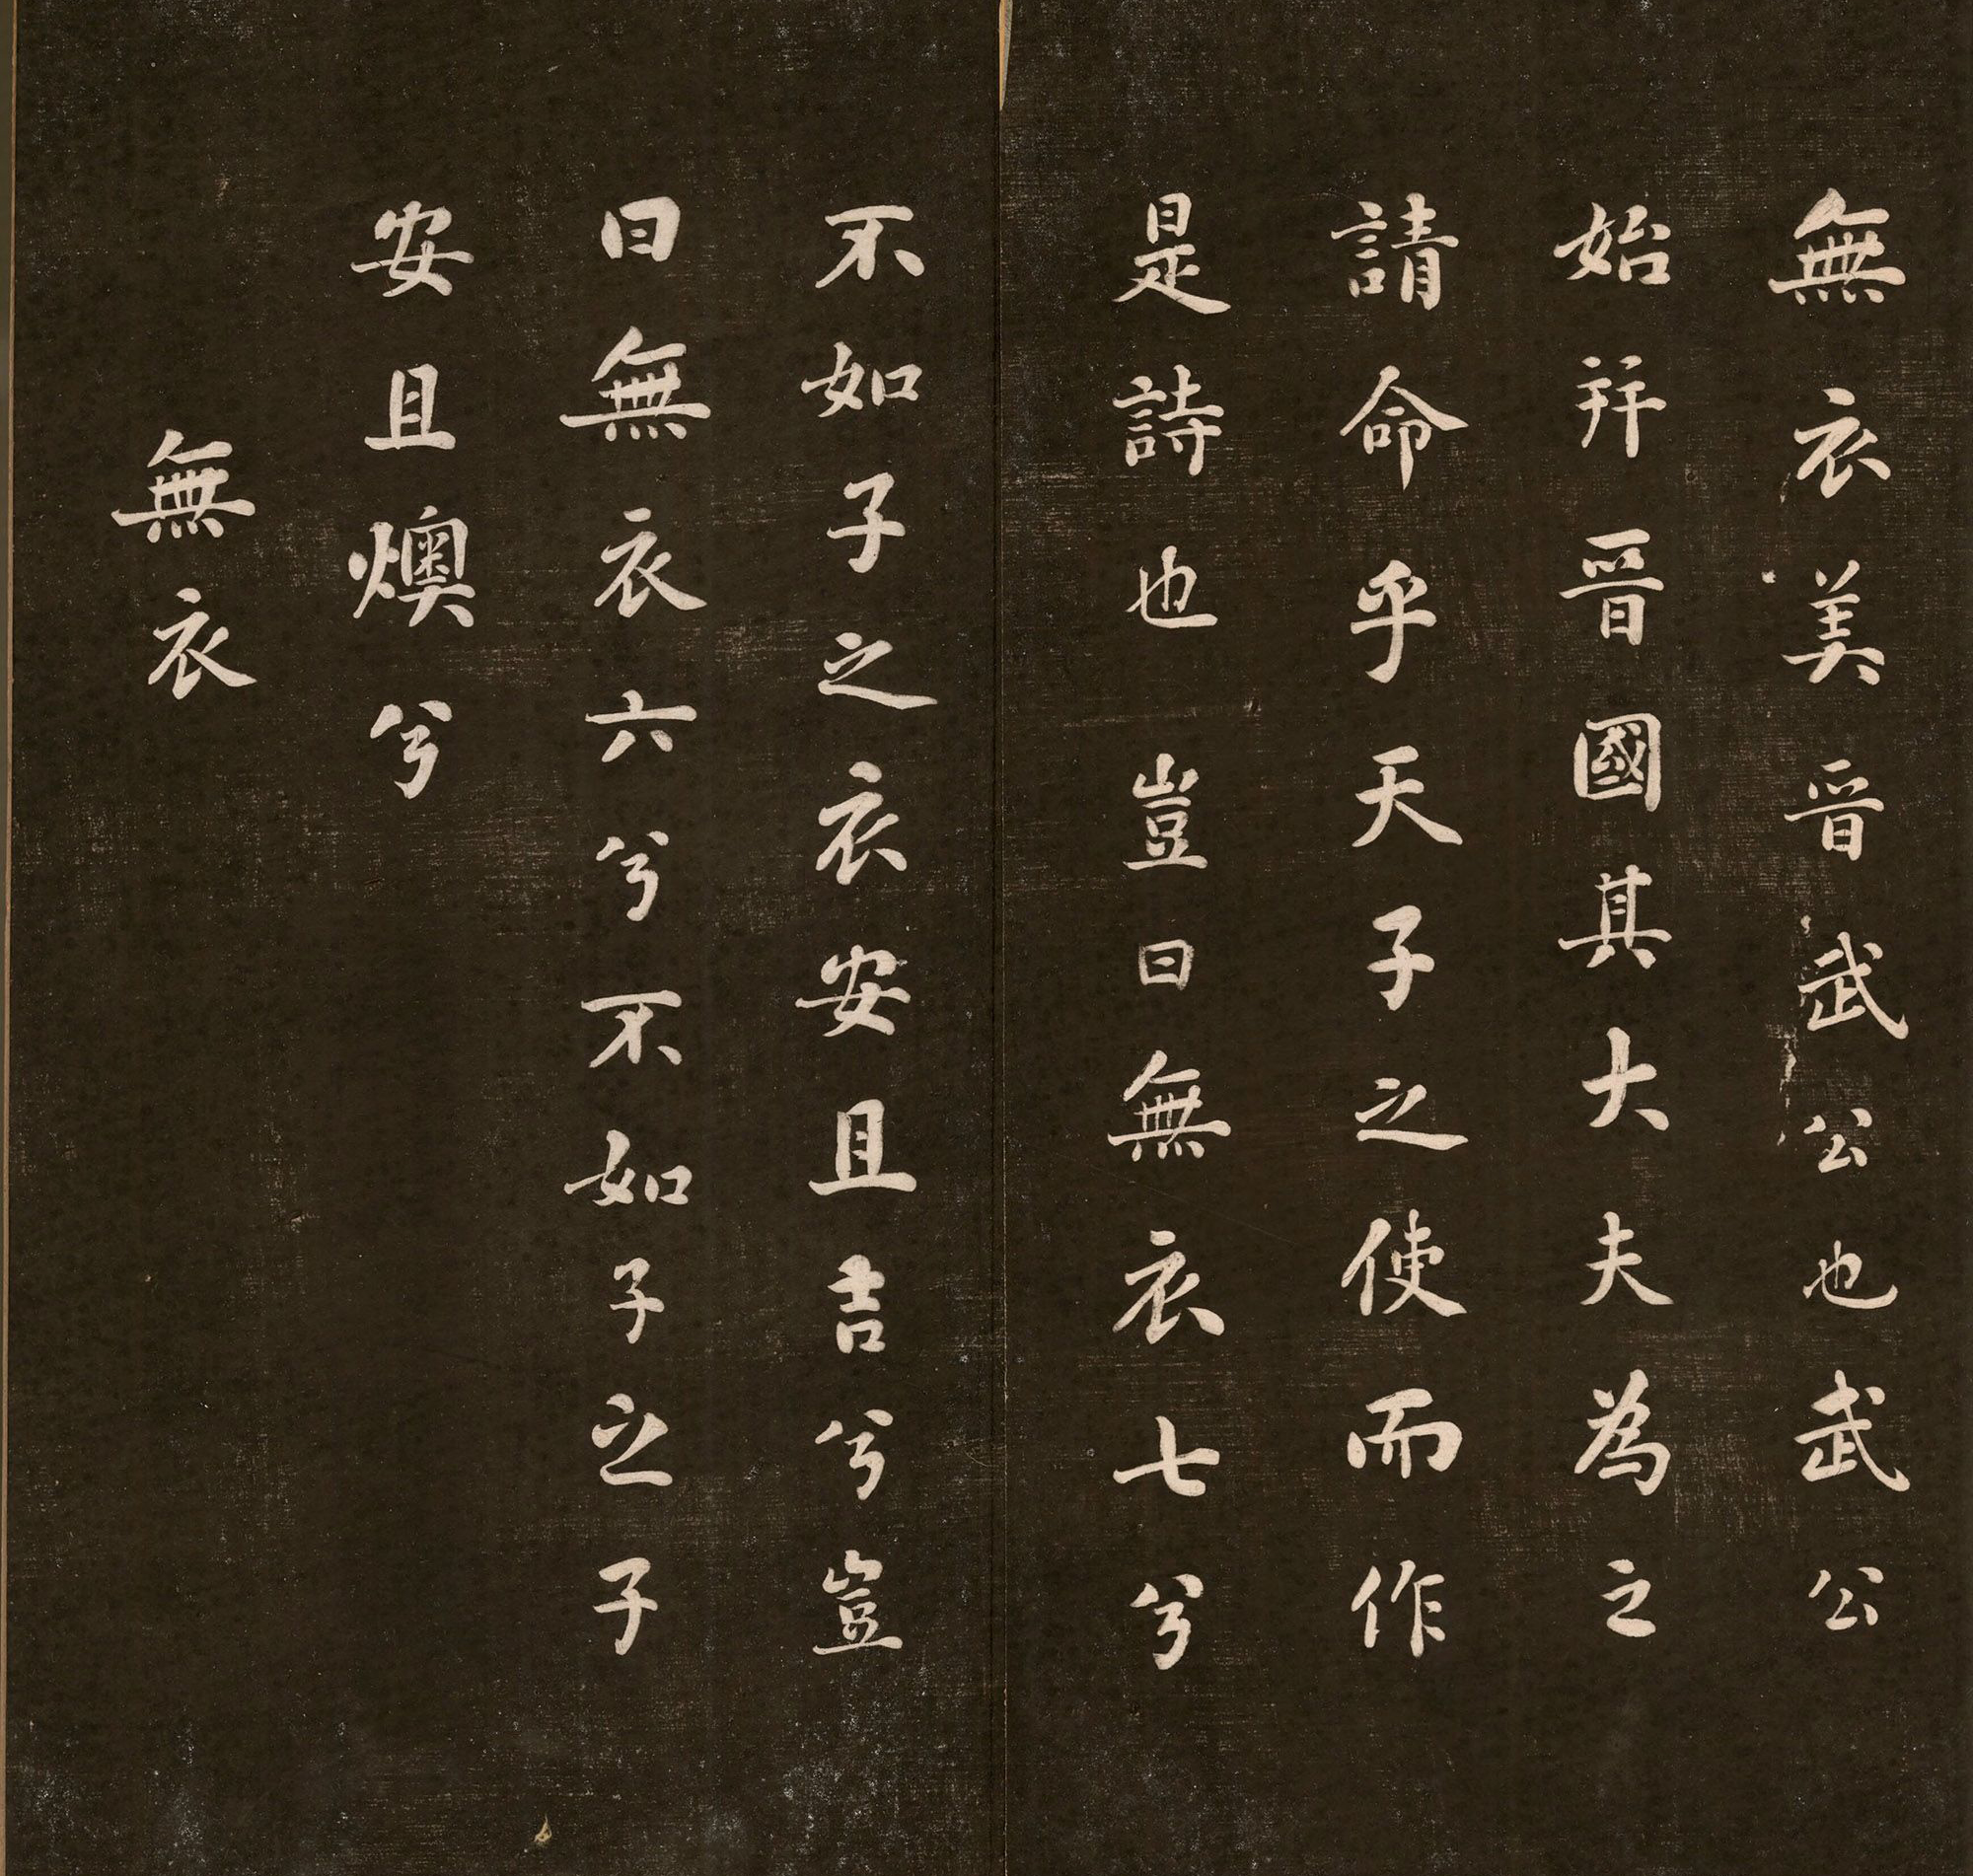 無衣美晋武公也武公
始拜晋國其大夫為之
請命乎天子之使而作
是詩也 豈曰無衣七兮
不如子之衣安且吉兮豈
曰無衣六兮不如子之子
安且燠兮
無衣